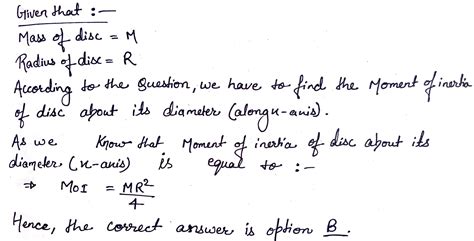 Given that :-
Mass of disc = M
Radius of disc = R
According to the Question, we have to find the Moment of inertia
of disc about its diameter (along x-axis).
As we know that Moment of inertia of disc about its
diameter (x-axis) is equal to :-
⇒ MOI = MR²/4
Hence, the correct answer is option B.